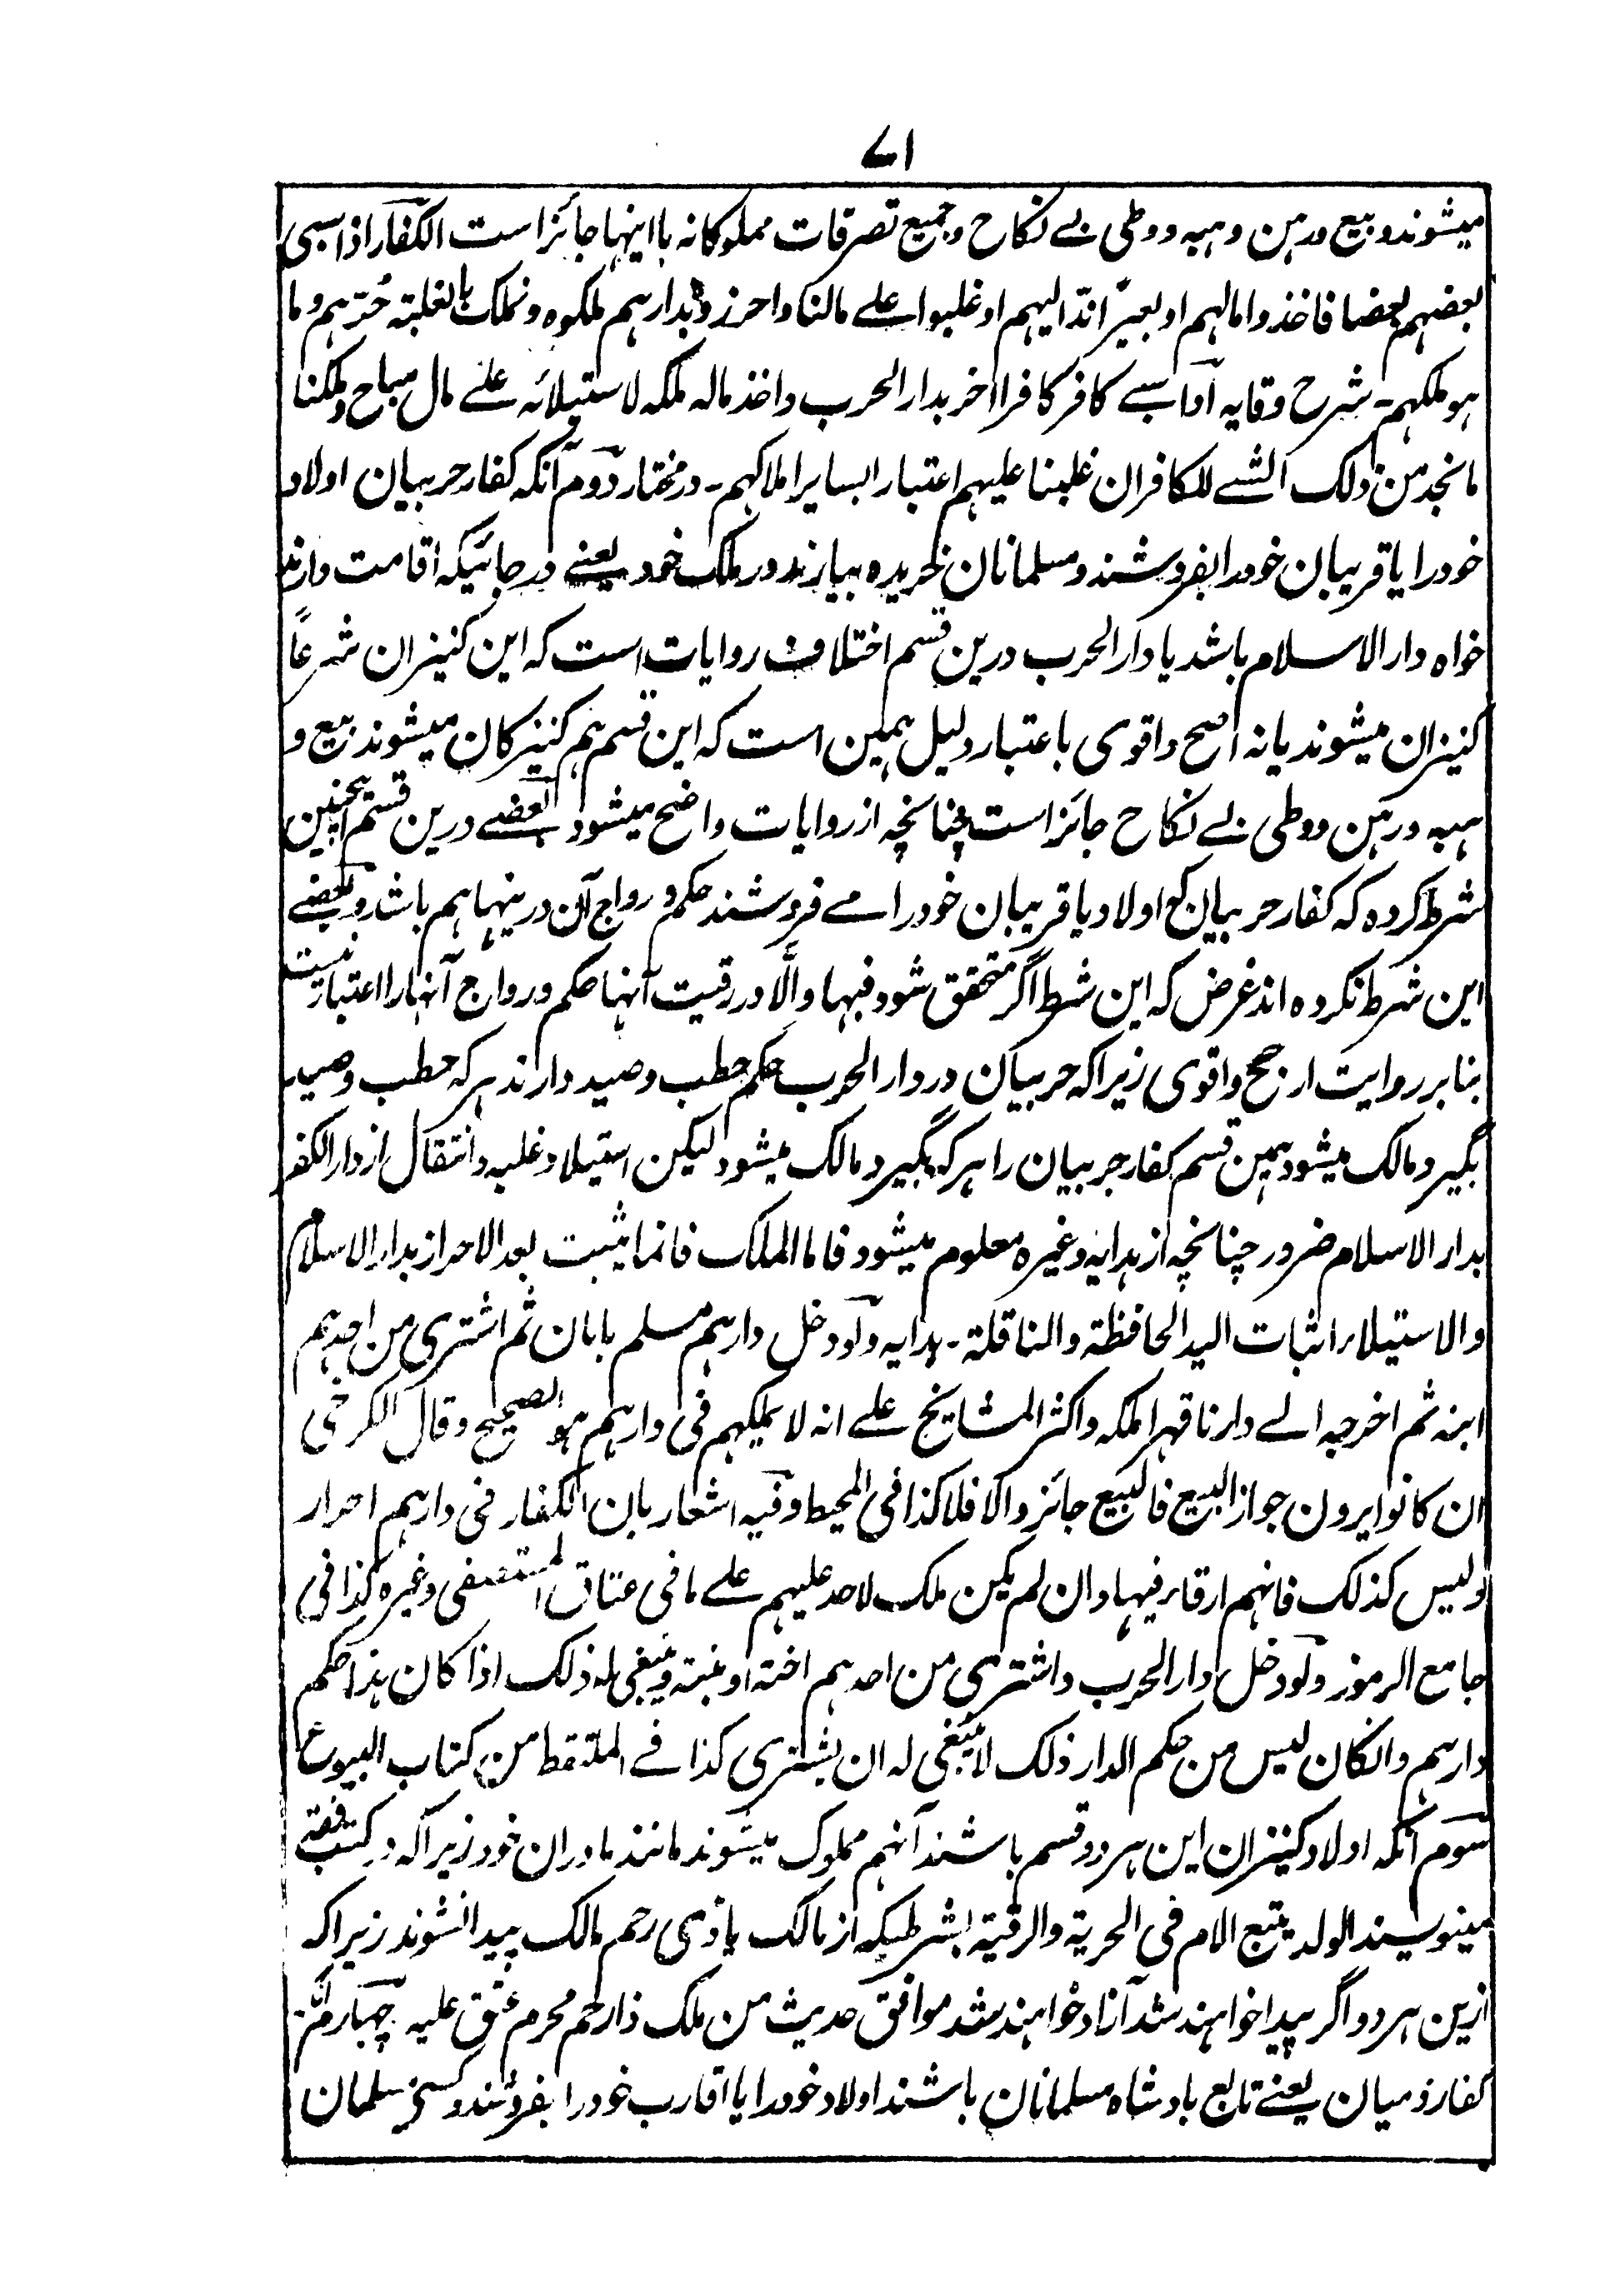 ۷۱
میشوند و بیع و رہن و ہبہ و وطی بے نکاح و جمیع تصرفات مملوکانہ با اینہا جائز است الکفار اذا سبی
بعضہم بعضا فاخذوا مالہم او بعیرا ندّ الیہم او غلبوا علے مالنا و احرزوہ بدارہم ملکوہ و نملک بالغلبتہ حُرّہم و ما
ہو ملکہم۔ شرح وقایہ اذا سبے کافر کافرا اخر بدار الحرب و اخذ مالہ ملکہ لاستیلائہ علے مال مباح و ملکنا
ما نجد من ذلک الشے للکافر ان غلبنا علیہم اعتبارا بسایر املاکہم۔ در مختار دوم آنکہ کفار حربیان اولاد
خود را یا قریبان خود را بفروشند و مسلمانان خریدہ بیارند در ملک خود یعنے در جائیکہ اقامت دارند
خواہ دار الاسلام باشد یا دار الحرب درین قسم اختلاف روایات است کہ این کنیزان شرعاً
کنیزان میشوند یا نہ اصح و اقوی باعتبار دلیل ہمین است کہ این قسم ہم کنیزکان میشوند بیع و
ہبہ و رہن و وطی بے نکاح جائز است چنانچہ از روایات واضح میشود بعضے درین قسم اینچنین
شرط کردہ کہ کفار حربیان کہ اولاد یا قریبان خود را مے فروشند حکم و رواج آن در ینہا ہم باشد و بعضے
این شرط نکردہ اند غرض کہ این شرط اگر متحقق شود فبہا و الّا در رقیت آنہا حکم و رواج آنہا را اعتبار نیست
بنا بر روایت ارجح و اقوی زیرا کہ حربیان در دار الحرب حکم حطب و صید دارند ہر کہ حطب و صید
بگیرد مالک میشود ہمین قسم کفار حربیان را ہر کہ بگیرد مالک میشود لیکن استیلا و غلبہ و انتقال از دار الکفر
بدار الاسلام ضرور چنانچہ از ہدایہ و غیرہ معلوم میشود فاما الملک فانما یثبت بعد الاحراز بدار الاسلام
و الاستیلاء اثبات الید الحافظة و الناقلة۔ ہدایہ و لو دخل دارہم مسلم بامان ثم اشتری من احدہم
ابنہ ثم اخرجہ الے دارنا قہرا ملکہ و اکثر المشایخ علے انہ لا یملکہم فی دارہم ہو الصحیح و قال الکرخی
ان کانوا یرون جواز البیع فالبیع جائز و الا فلا کذا فی المحیط و فیہ اشعار بان الکفار فی دارہم احرار
و لیس کذلک فانہم ارقاء فیہا و ان لم یکن ملک لاحد علیہم علے ما فی عتاق المستصفی و غیرہ کذا فی
جامع الرموز و لو دخل دار الحرب و اشتری من احدہم اختہ او بنتہ و ینبغی لہ ذلک اذا کان ہذا حکم
دارہم و انکان لیس من حکم الدار ذلک لا ینبغی لہ ان یشتری کذا فے الملتقط من کتاب البیوع
سوم آنکہ اولاد کنیزان این ہر دو قسم باشند آنہم مملوک میشوند مانند مادران خود زیرا کہ در کتب فقہ
مینویسند الولد یتبع الام فی الحریة و الرقیة بشرطیکہ از مالک یا ذی رحم مالک پیدا نشوند زیرا کہ
ازین ہر دو اگر پیدا خواہند شد آزاد خواہند شد موافق حدیث من ملک ذا رحم محرم عتق علیہ چہارم آنکہ
کفار ذمیان یعنے تابع بادشاہ مسلمانان باشند اولاد خود را یا اقارب خود را بفروشند و مسلمان